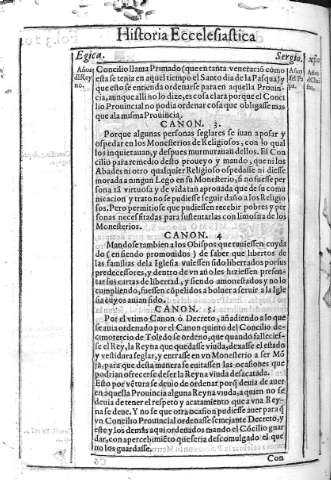 Historia Eccelesiastica
Egica. Sergio. xjo
Años del Reyno.
Años del Pa
Concilio llama Primado (que en tanta veneració como
esta se tenia en aquel tiempo el Santo dia de la Pasqua) y
que esto se entienda ordenarse para en aquella Prouincia,
aunque alli no lo dize, es cosa clara porque el Concilio
Prouincial no podia ordenar cosa que obligasse mas
que a la misma Prouincia.
CANON. 3.
Porque algunas personas seglares se iuan a posar y
ospedar en los Monesterios de Religiosos, con lo qual
los inquietauan, y despues murmurauan dellos. El Concilio
para remedio desto proueyo y mando, que ni los
Abades ni otro qualquier Religioso ospedasse ni diesse
morada a ningun Lego en su Monesterio, si no fuesse persona
tã virtuosa y de vida tan aprouada que de su comunicacion
y trato no se pudiesse seguir daño a los Religiosos.
Pero permitiose que pudiessen recebir pobres y personas
necessitadas para sustentarlas con limosna de los
Monesterios.
CANON. 4
Mandose tambien a los Obispos que tuuiessen cuydado
(en siendo promouidos) de saber que libertos de
las familias dela Iglesia vuiessen sido libertados por sus
predecessores, y dentro de vn año les hiziessen presentar
sus cartas de libertad, y siendo amonestados y no lo
cumpliendo, fuessen cõpelidos a boluer a seruir a la Iglesia
cuyos auian sido.
CANON. 5.
Por el vtimo Canon ò Decreto, añadiendo a lo que
se auia ordenado por el Canon quinto del Concilio demotercio
de Toledo se ordenò, que quando falleciesse
el Rey, la Reyna que quedasse viuda, dexasse el estado
y vestidura seglar, y entrasse en vn Monesterio a ser Mõja,
para que desta manera se euitassen las ocasiones que
podrian ofrecerse de ser la Reyna viuda desacatada.
Esto por vẽtura se deuio de ordenar porq̃ deuia de auer
en aquella Prouincia alguna Reyna viuda, a quien no se
deuia de tener el respeto y acatamiento que a vna Reyna
se deue. Y no se que otra ocasion pudiesse auer para q̃
vn Concilio Prouincial ordenasse semejante Decreto, y
este y los demàs aqui ordenados mando el Cõcilio guardar,
con apercebimiẽto que seria descomulgado el que
no los guardasse.
Con